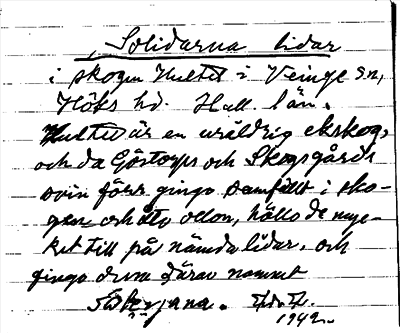 Solidarna lidar
i skogen Hultet i Veinge sn,
Höks hd. Hall. län.
Hultet är en uråldrig ekskog,
och da Göstorps och Skogsgårds
svin förr gingo samfällt i sko-
gen och åto ollon, höllo de myc-
ket till på nämda lidar, och
fingo dessa därav namnet
1942.